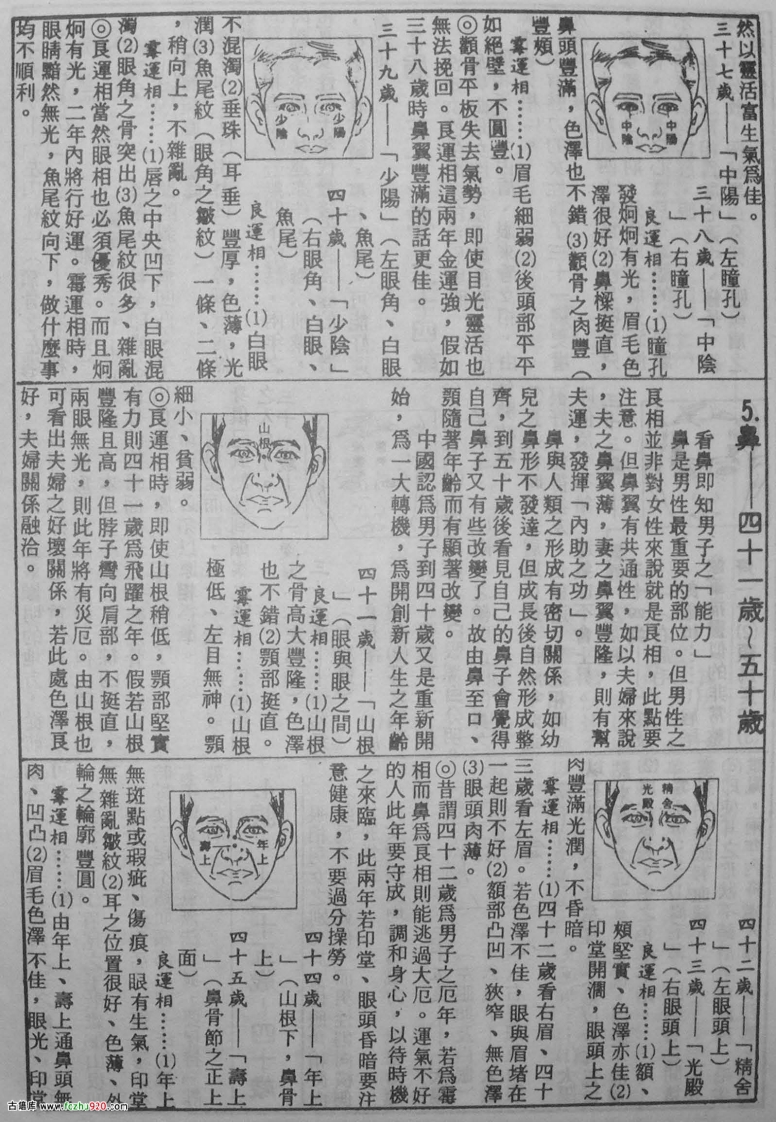 然以靈活富生氣爲佳。
三十七歲——「中陽」（左瞳孔）
中陰
中陽
三十八歲——「中陰
」（右瞳孔）
良運相……(1)瞳孔
發炯炯有光，眉毛色
澤很好(2)鼻樑挺直，
鼻頭豐滿，色澤也不錯(3)顴骨之肉豐（
豐頰）
霉運相……(1)眉毛細弱(2)後頭部平平
如絕壁，不圓豐。
◎顴骨平板失去氣勢，即使目光靈活也
無法挽回。良運相這兩年金運強，假如
三十八歲時鼻翼豐滿的話更佳。
三十九歲——「少陽」（左眼角、白眼
、魚尾）
少陰
少陽
四十歲——「少陰」
（右眼角、白眼、
魚尾）
良運相……(1)白眼
不混濁(2)垂珠（耳垂）豐厚，色薄，光
潤(3)魚尾紋（眼角之皺紋）一條、二條
，稍向上，不雜亂。
霉運相……(1)唇之中央凹下，白眼混
濁(2)眼角之骨突出(3)魚尾紋很多、雜亂
◎良運相當然眼相也必須優秀。而且炯
炯有光，二年內將行好運。霉運相時，
眼睛黯然無光，魚尾紋向下，做什麼事
均不順利。
5.鼻——四十一歲～五十歲
看鼻即知男子之「能力」
鼻是男性最重要的部位。但男性之
良相並非對女性來說就是良相，此點要
注意。但鼻翼有共通性，如以夫婦來說
，夫之鼻翼薄，妻之鼻翼豐隆，則有幫
夫運，發揮「內助之功」。
鼻與人類之形成有密切關係，如幼
兒之鼻形不發達，但成長後自然形成整
齊，到五十歲後看見自己的鼻子會覺得
自己鼻子又有些改變了。故由鼻至口、
顎隨著年齡而有顯著改變。
中國認爲男子到四十歲又是重新開
始，爲一大轉機，爲開創新人生之年齡
山根
四十一歲——「山根
」（眼與眼之間）
良運相……(1)山根
之骨高大豐隆，色澤
也不錯(2)顎部挺直。
霉運相……(1)山根
極低、左目無神。顎
細小、貧弱。
◎良運相時，即使山根稍低，顎部堅實
有力則四十一歲爲飛躍之年。假若山根
豐隆且高，但脖子彎向肩部，不挺直，
兩眼無光，則此年將有災厄。由山根也
可看出夫婦之好壞關係，若此處色澤良
好，夫婦關係融洽。
光殿
精舍
四十二歲——「精舍
」（左眼頭上）
四十三歲——「光殿
」（右眼頭上）
良運相……(1)額、
頰堅實、色澤亦佳(2)
印堂開濶，眼頭上之
肉豐滿光潤，不昏暗。
霉運相……(1)四十二歲看右眉、四十
三歲看左眉。若色澤不佳，眼與眉堵在
一起則不好(2)額部凸凹、狹窄、無色澤
(3)眼頭肉薄。
◎昔謂四十二歲爲男子之厄年，若爲霉
相而鼻爲良相則能逃過大厄。運氣不好
的人此年要守成，調和身心，以待時機
之來臨，此兩年若印堂、眼頭昏暗要注
意健康，不要過分操勞。
壽上
年上
四十四歲——「年上
」（山根下，鼻骨
上）
四十五歲——「壽上
」（鼻骨節之正上
面）
良運相……(1)年上
無斑點或瑕疵、傷痕，眼有生氣，印堂
無雜亂皺紋(2)耳之位置很好、色薄、外
輪之輪廓豐圓。
霉運相……(1)由年上、壽上通鼻頭無
肉、凹凸(2)眉毛色澤不佳，眼光、印堂
古籍库 www.fczhu920.com